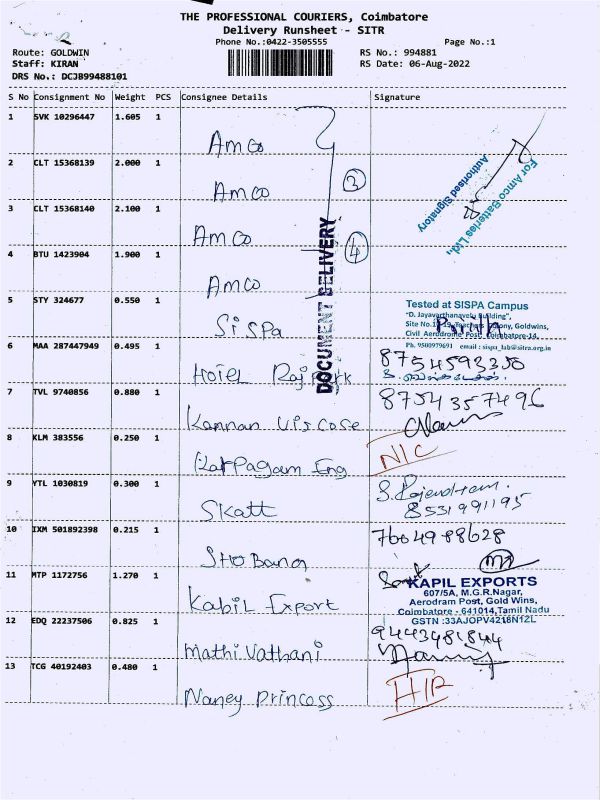 THE PROFESSIONAL COURIERS, Coimbatore
Delivery Runsheet - SITR
Phone No.:0422-3505555 Page No.:1
Route: GOLDWIN RS No.: 994881
Staff: KIRAN RS Date: 06-Aug-2022
DRS No.: DCJB99488101
S No Consignment No Weight PCS Consignee Details Signature
1 SVK 10296447 1.605 1
Amco
2 CLT 15368139 2.000 1
Amco
3
3 CLT 15368140 2.100 1
Amco
4
4 BTU 1423904 1.900 1
Amco
For Amco Batteries Ltd.,
Authorised Signatory
DOCUMENT DELIVERY
5 STY 324677 0.550 1
Sispa
Tested at SISPA Campus
"D. Jayavarthanavelu Building",
Colony, Goldwins,
Civil Aerodrome Post, Coimbatore-14.
Ph. 9500979691 email : sispa_lab@sitra.org.in
6 MAA 287447949 0.495 1
Hotel Raj Park
8754593350
7 TVL 9740856 0.880 1
Kannan Viscose
8754357496
8 KLM 383556 0.250 1
Karpagam Eng
NIC
9 YTL 1030819 0.300 1
Skatt
S. Rajendran.
8531991195
10 IXM 501892398 0.215 1
Shobana
7604988628
11 MTP 1172756 1.270 1
Kabil Export
KAPIL EXPORTS
607/5A, M.G.R.Nagar,
Aerodram Post, Gold Wins,
Coimbatore - 641014,Tamil Nadu
GSTN :33AJOPV4218N1ZL
12 EDQ 22237506 0.825 1
Mathi Vathani
9443481844
13 TCG 40192403 0.480 1
Naney Princess